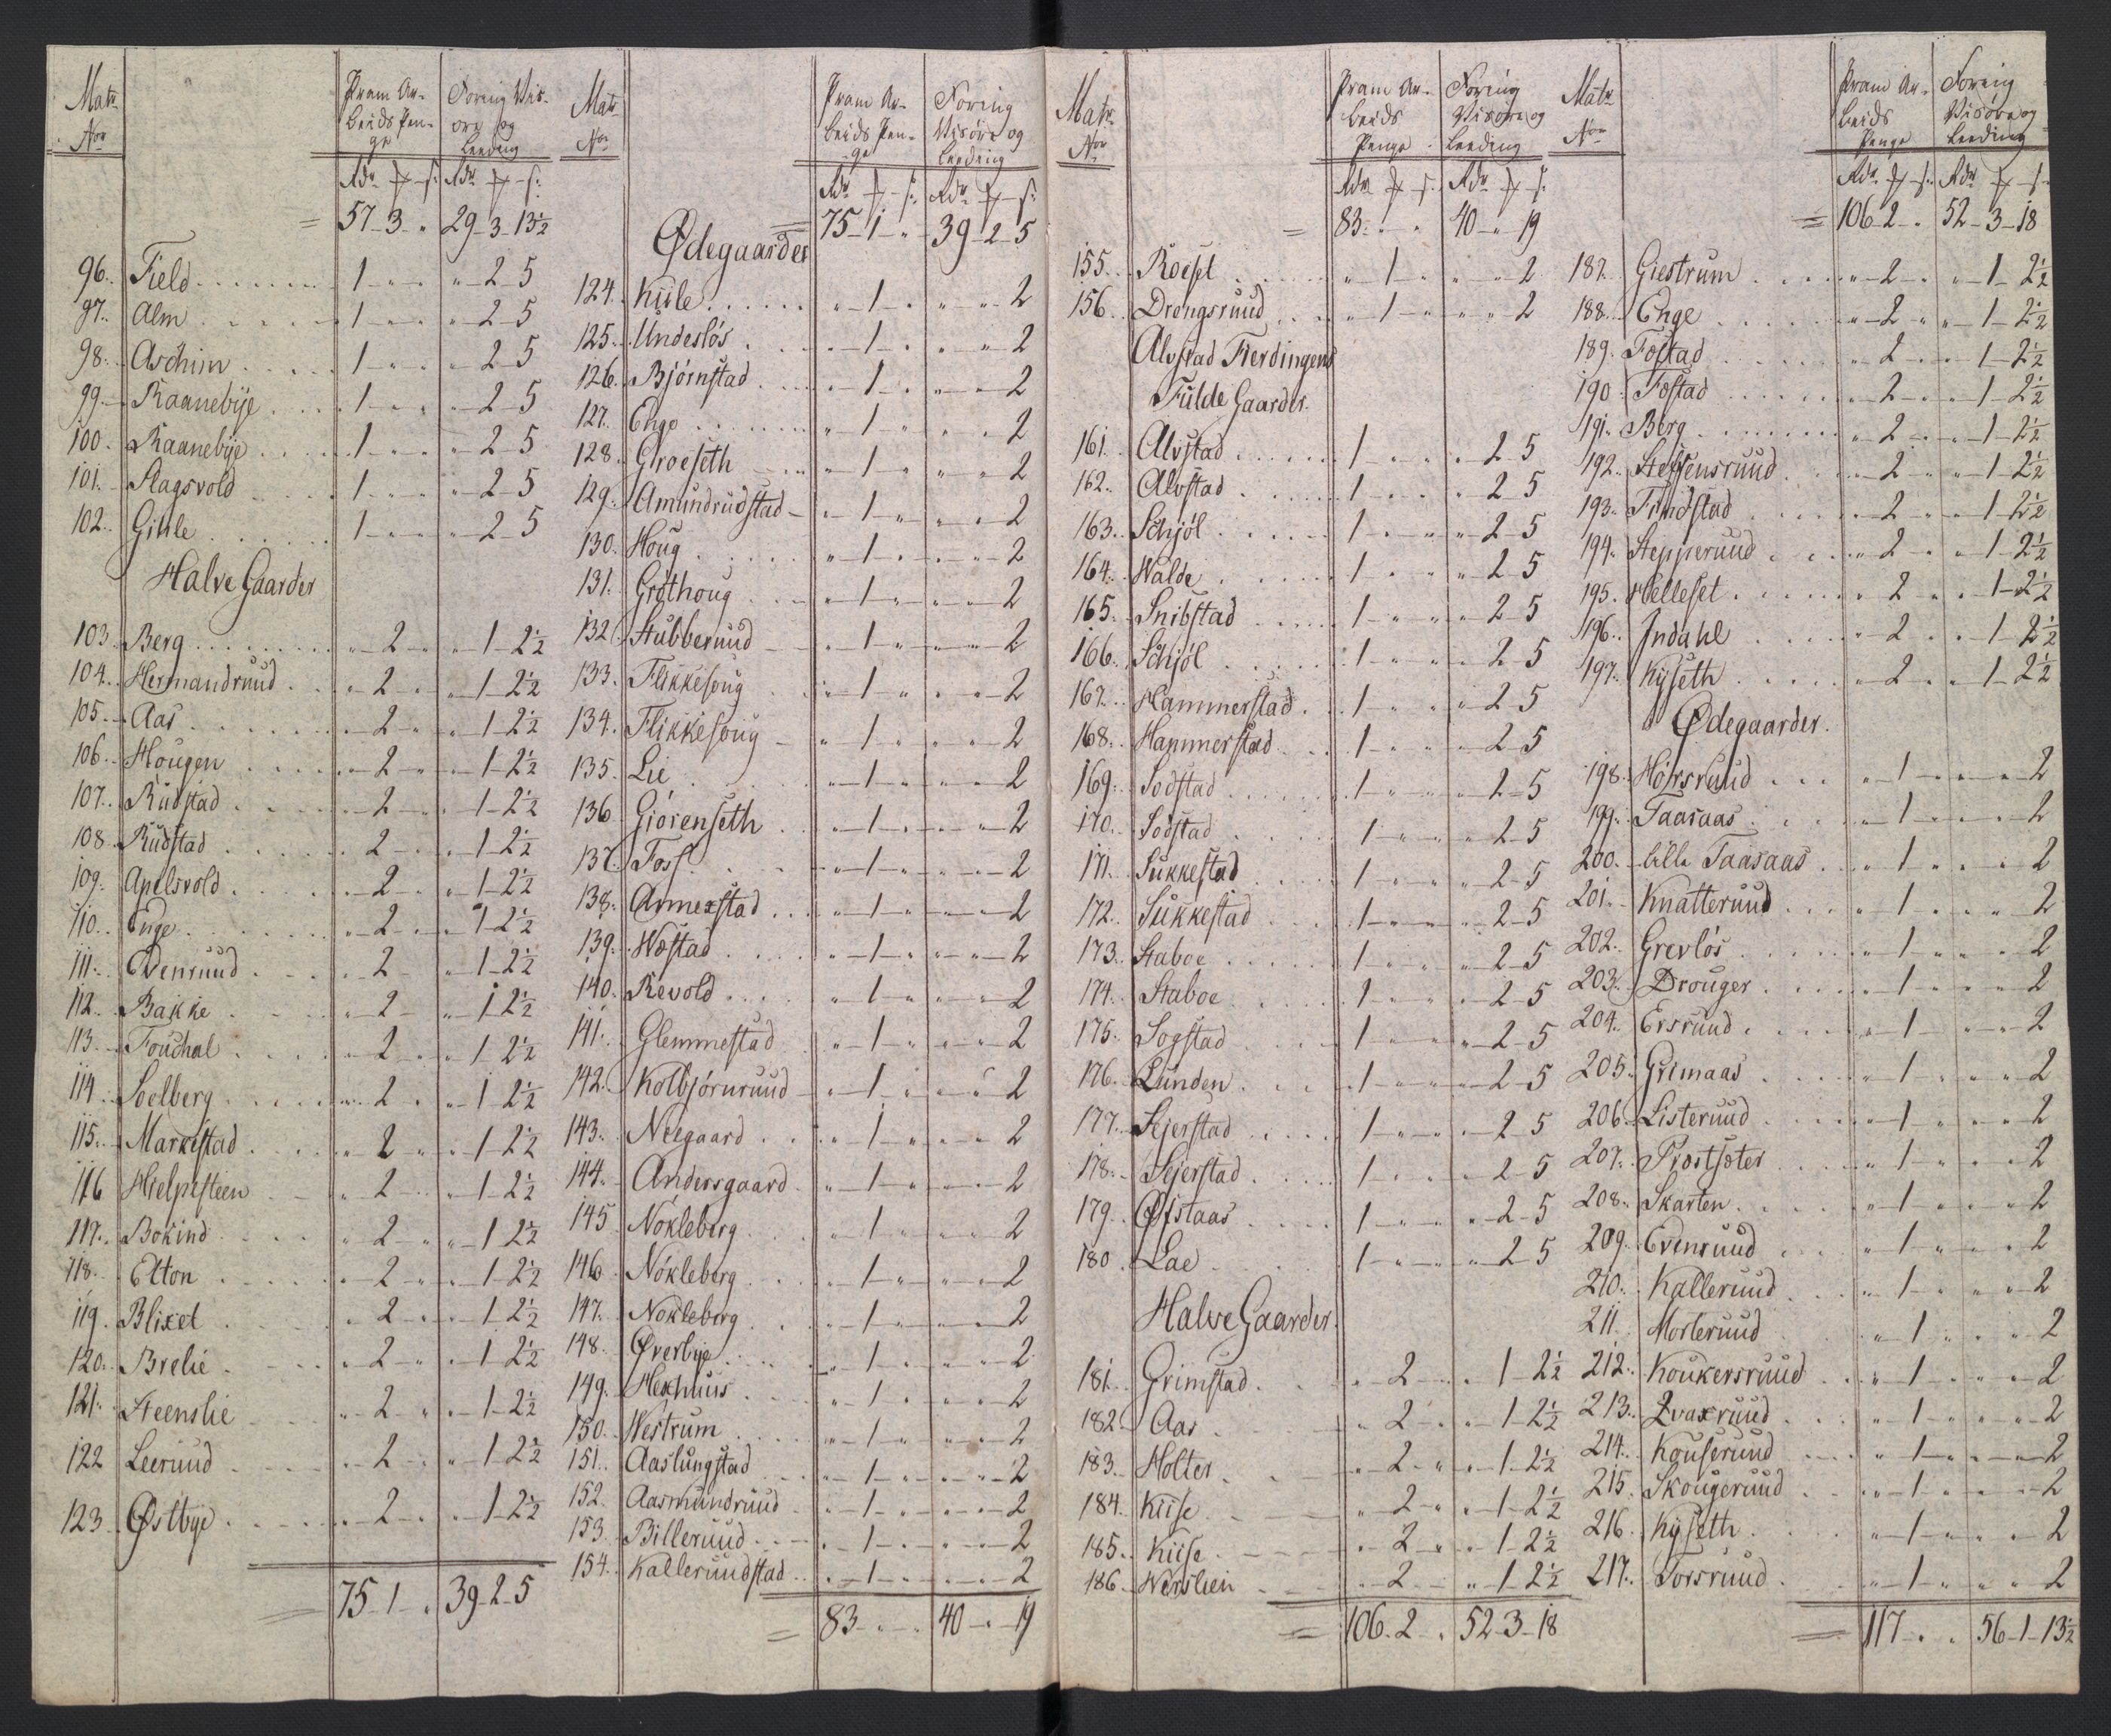 Matr. Nor | Pram Arbeids Penge | Foring Visøre og Leeding
Rdr ₰ s: | Rdr ₰ s:
= 57-3-" | 29-3-13½
96. Field 1-"-" "-2-5
97. Alm 1-"-" "-2-5
98. Aschim 1-"-" "-2-5
99. Raanebÿe 1-"-" "-2-5
100. Raanebÿe 1-"-" "-2-5
101. Slagsvold 1-"-" "-2-5
102. Gihle 1-"-" "-2-5
Halve Gaarder
103. Berg "-2-" "-1-2½
104. Hermandruud "-2-" "-1-2½
105. Aas "-2-" "-1-2½
106. Hougen "-2-" "-1-2½
107. Rudstad "-2-" "-1-2½
108. Rudstad "-2-" "-1-2½
109. Apelsvold "-2-" "-1-2½
110. Enge "-2-" "-1-2½
111. Evenruud "-2-" "-1-2½
112. Bakke "-2-" "-1-2½
113. Foudhal "-2-" "-1-2½
114. Soelberg "-2-" "-1-2½
115. Markestad "-2-" "-1-2½
116 Hielpesteen "-2-" "-1-2½
117. Bokind "-2-" "-1-2½
118. Etton "-2-" "-1-2½
119. Blixet "-2-" "-1-2½
120. Brelie "-2-" "-1-2½
121. Steenslie "-2-" "-1-2½
122 Leeruud "-2-" "-1-2½
123. Østbye "-2-" "-1-2½
= 75-1-" | 39-2-5
Matr. Nor | Pram Arbeids Penge | Foring Visöre og Leeding
Rdr ₰ s: | Rdr ₰ s:
Ødegaarder = 75-1-" | 39-2-5
124. Kiile "-1-" "-"-2
125. Undesløs "-1-" "-"-2
126. Bjørnstad "-1-" "-"-2
127. Enge "-1-" "-"-2
128. Groeseth "-1-" "-"-2
129. Amundrudstad "-1-" "-"-2
130. Houg "-1-" "-"-2
131. Grøthoug "-1-" "-"-2
132. Stubberuud "-1-" "-"-2
133. Flikkesoug "-1-" "-"-2
134. Flikkesoug "-1-" "-"-2
135. Lie "-1-" "-"-2
136 Giörenseth "-1-" "-"-2
137. Foss "-1-" "-"-2
138. Annexstad "-1-" "-"-2
139. Wøstad "-1-" "-"-2
140. Revold "-1-" "-"-2
141. Glemmestad "-1-" "-"-2
142. Kolbjørnruud "-1-" "-"-2
143. Neegaard "-1-" "-"-2
144. Andersgaard "-1-" "-"-2
145 Nökleberg "-1-" "-"-2
146 Nökleberg "-1-" "-"-2
147. Nökleberg "-1-" "-"-2
148. Øverbye "-1-" "-"-2
149. Hexhuus "-1-" "-"-2
150. Westrum "-1-" "-"-2
151. Aaslungstad "-1-" "-"-2
152. Aasmundruud "-1-" "-"-2
153 Billeruud "-1-" "-"-2
154. Kalleruudstad "-1-" "-"-2
= 83-"-" | 40-"-19
Matr. Nor | Pram Arbeids Penge | Foring Visöre og Leeding
Rdr ₰ s: | Rdr ₰ s:
= 83-"-" | 40-"-19
155. Roeset "-1-" "-"-2
156. Drengsruud "-1-" "-"-2
Alvstad Fierdingens
Fulde Gaarder.
161. Alvstad 1-"-" "-2-5
162. Alvstad 1-"-" "-2-5
163. Schjøl 1-"-" "-2-5
164. Walde 1-"-" "-2-5
165. Snibstad 1-"-" "-2-5
166. Schjøl 1-"-" "-2-5
167. Hammerstad 1-"-" "-2-5
168. Hammerstad 1-"-" "-2-5
169. Sodstad 1-"-" "-2-5
170. Sodstad 1-"-" "-2-5
171. Sukkestad 1-"-" "-2-5
172. Sukkestad 1-"-" "-2-5
173. Staboe 1-"-" "-2-5
174. Staboe 1-"-" "-2-5
175. Sogstad 1-"-" "-2-5
176. Lunden 1-"-" "-2-5
177. Sejerstad 1-"-" "-2-5
178. Sejerstad 1-"-" "-2-5
179. Øistaas 1-"-" "-2-5
180. Lae 1-"-" "-2-5
Halve Gaarder.
181. Grimstad "-2-" "-1-2½
182. Aas "-2-" "-1-2½
183. Holter "-2-" "-1-2½
184. Kiise "-2-" "-1-2½
185. Kiise "-2-" "-1-2½
186. Werslien "-2-" "-1-2½
= 106-2-" | 52-3-18
Matr. Nor | Pram Arbeids Penge | Foreig Visöre og Leeding
Rdr ₰ s: | Rdr ₰ s:
= 106-2-" | 52-3-18
187. Giestrum "-2-" "-1-2½
188. Enge "-2-" "-1-2½
189. Fostad "-2-" "-1-2½
190 Fostad "-2-" "-1-2½
191. Berg "-2-" "-1-2½
192. Steffensruud "-2-" "-1-2½
193. Findstad "-2-" "-1-2½
194. Stepperuud "-2-" "-1-2½
195. Helleset "-2-" "-1-2½
196. Indahl "-2-" "-1-2½
197. Kÿseth "-2-" "-1-2½
Ødegaarder.
198. Hørsruud "-1-" "-"-2
199. Taasaas "-1-" "-"-2
200. lille Taasaas "-1-" "-"-2
201. Knatteruud "-1-" "-"-2
202. Grevløs "-1-" "-"-2
203. Drouger "-1-" "-"-2
204. Ersruud "-1-" "-"-2
205. Grimaas "-1-" "-"-2
206. Listeruud "-1-" "-"-2
207. Prostsæter "-1-" "-"-2
208. Skarten "-1-" "-"-2
209. Evenruud "-1-" "-"-2
210. Kalleruud "-1-" "-"-2
211. Morteruud "-1-" "-"-2
212. Koukersruud "-1-" "-"-2
213. Qvaxruud "-1-" "-"-2
214. Kouseruud "-1-" "-"-2
215. Skougeruud "-1-" "-"-2
216. Kÿseth "-1-" "-"-2
217. Torsruud "-1-" "-"-2
= 117-"-" | 56-1-13½